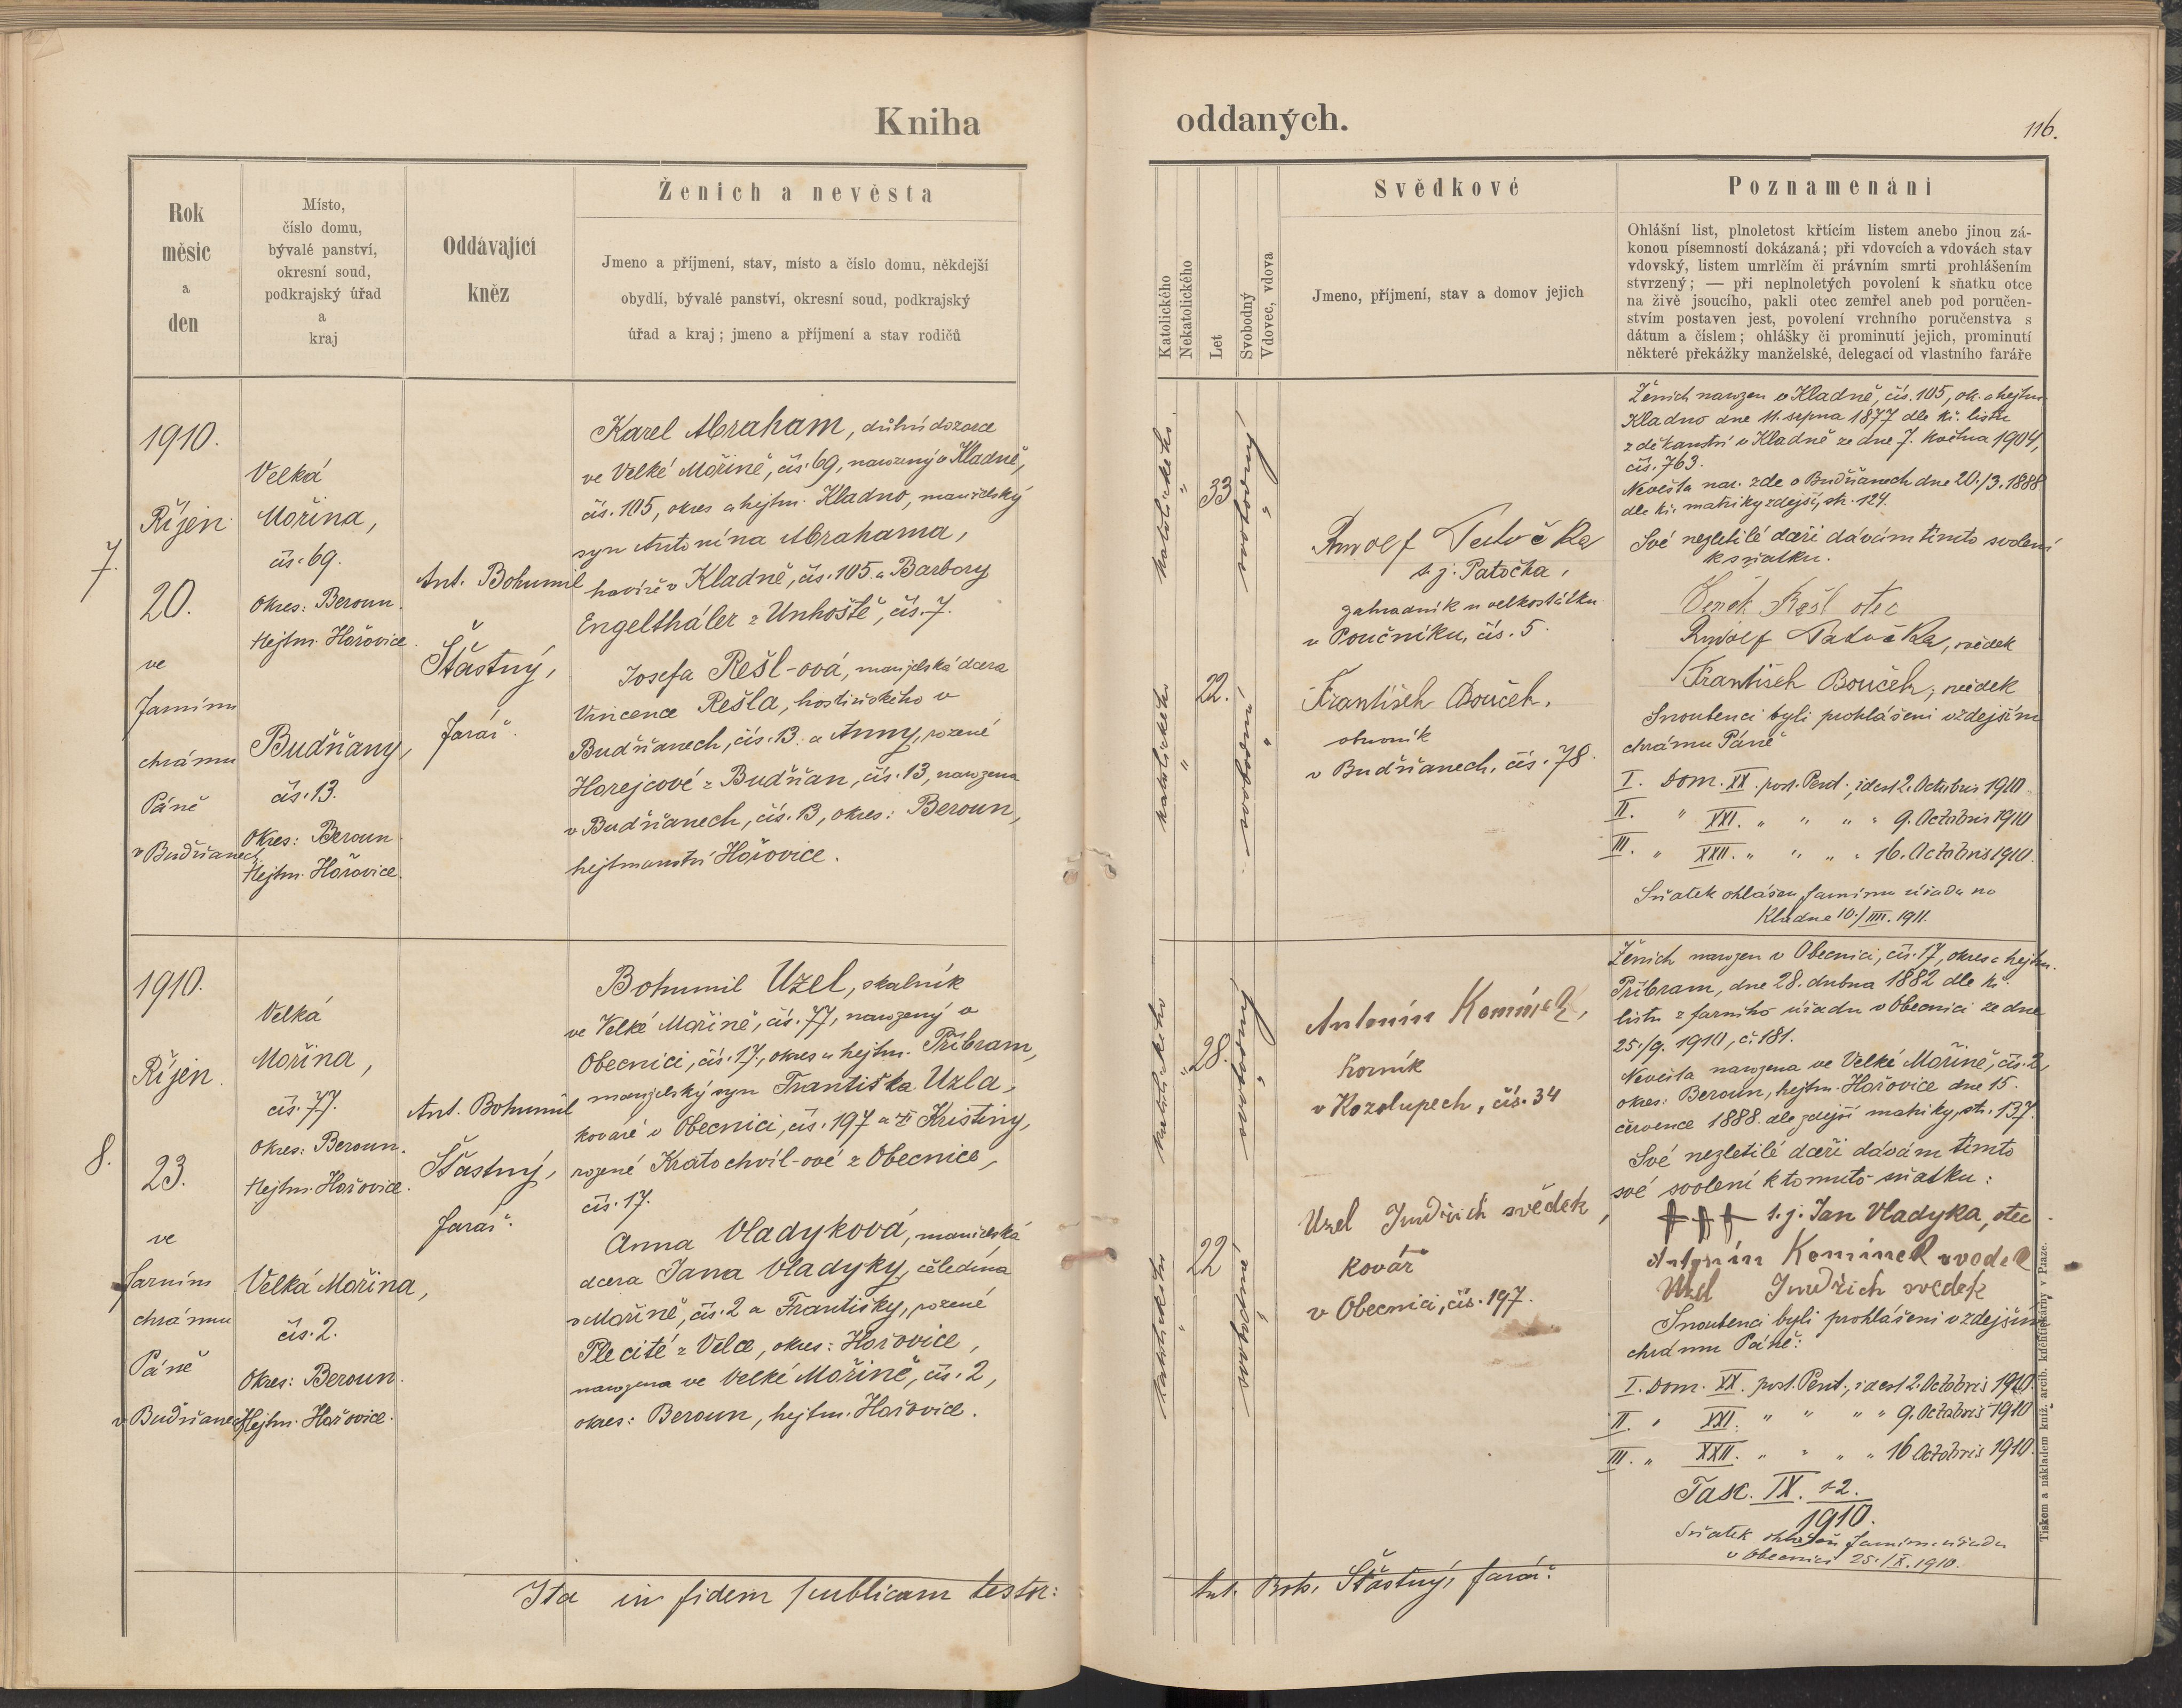 Kniha
oddaných.
116.
Rok
měsíc
a
den
Místo,
číslo domu,
bývalé panství,
okresní soud,
podkrajský úřad
a
kraj
Oddávající
kněz
Ženich a nevěsta
Jmeno a příjmení, stav, místo a číslo domu, někdejší
obydlí, bývalé panství, okresní soud, podkrajský
úřad a kraj; jmeno a příjmení a stav rodičů
Katolického
Nekatolického
Let
Svobodný
Vdovec, vdova
Svědkové
Jmeno, příjmení, stav a domov jejich
Poznamenání
Ohlášní list, plnoletost křtícím listem anebo jinou zá-
konou písemností dokázaná; při vdovcích a vdovách stav
vdovský, listem umrlčím či právním smrti prohlášením
stvrzený; — při neplnoletých povolení k sňatku otce
na živě jsoucího, pakli otec zemřel aneb pod poručen-
stvím postaven jest, povolení vrchního poručenstva s
dátum a číslem; ohlášky či prominutí jejich, prominutí
některé překážky manželské, delegací od vlastního faráře
7.
1910.
Říjen
20.
ve
farním
chrámu
Páně
v Budňanech
Velká
Mořina,
čís. 69.
Okres: Beroun.
Hejtm. Hořovice.
Budňany,
čís. 13.
Okres: Beroun
Hejtm. Hořovice.
Ant. Bohumil
Šťastný,
farář.
Karel Abraham, důlní dozorce
ve Velké Mořině, čís. 69, narozený v Kladně,
čís. 105, okres a hejtm. Kladno, manželský
syn Antonína Abrahama,
havíře v Kladně, čís. 105 a Barbory
Engeltháler z Unhoště, čís. 7.
Josefa Rešl-ová, manželská dcera
Vincence Rešla, hostinského v
Budňanech, čís. 13. a Anny, rozené
Horejcové z Budňan, čís. 13, narozena
v Budňanech, čís. 13, okres: Beroun,
hejtmanství Hořovice.
katolického
"
33
svobodný
"
katolického
"
22.
svobodná
"
Rudolf Patočka
t. j. Patočka,
zahradník u velkostatku
v Poučníku, čís. 5.
František Bouček,
obuvník
v Budňanech, čís. 78.
Ženich narozen v Kladně, čís. 105, ok. a hejtm.
Kladno dne 11. srpna 1877 dle kř. listu
z děkanství v Kladně ze dne 7. května 1904,
čís. 763.
Nevěsta nar. zde v Budňanech dne 20./3. 1888
dle kř. matriky zdejší, str. 124.
Své nezletilé dceři dávám tímto svolení
k sňatku.
Rešl otec
Rudolf Patočka, svědek
František Bouček, svědek
Snoubenci byli prohlášeni v zdejším
chrámu Páně
I. Dom. XX. post. Pent., id est 2. Octobris 1910
II. " XXI. " " " " 9. Octobris 1910
III. " XXII. " " " " 16. Octobris 1910.
Sňatek ohlášen farnímu úřadu na
Kladně 10./III. 1911.
8.
1910.
Říjen
23.
ve
farním
chrámu
Páně
v Budňanech
Velká
Mořina,
čís. 77.
Okres: Beroun.
Hejtm. Hořovice.
Velká Mořina,
čís. 2.
Okres: Beroun.
Hejtm. Hořovice.
Ant. Bohumil
Šťastný,
farář.
Bohumil Uzel, skalník
ve Velké Mořině, čís. 77, narozený v
Obecnici, čís. 17., okres a hejtm. Příbram,
manželský syn Františka Uzla,
kováře v Obecnici, čís. 197 a Kristiny,
rozené Kratochvíl-ové z Obecnice,
čís. 17.
Anna Vladyková, manželská
dcera Jana Vladyky, čeledína
v Mořině, čís. 2 a Františky, rozené
Plecité z Velce, okres: Hořovice,
narozena ve Velké Mořině, čís. 2,
okres: Beroun, hejtm. Hořovice.
katolického
"
28.
svobodný
"
katolického
"
22
svobodná
"
Antonín Komínek,
horník
v Kozolupech, čís. 34
Uzel Jindřich svědek,
kovář
v Obecnici, čís. 197.
Ženich narozen v Obecnici, čís. 17, okres a hejtm.
Příbram, dne 28. dubna 1882 dle kř.
listu z farního úřadu v Obecnici ze dne
25./9. 1910, č. 181.
Nevěsta narozena ve Velké Mořině, čís. 2,
okres: Beroun, hejtm. Hořovice dne 15.
července 1888. dle zdejší matriky, str. 137.
Své nezletilé dceři dávám tímto
své svolení k tomuto sňatku:
††† t. j. Jan Vladyka, otec
Antonín Komínek svodek
Uzel Jindřich svědek
Snoubenci byli prohlášeni v zdejším
chrámu Páně:
I. Dom. XX. post. Pent., id est 2. Octobris 1910
II. " XXI. " " " " 9. Octobris 1910
III. " XXII. " " " " 16 Octobris 1910.
Fasc. IX. 12.
1910.
Sňatek ohlášen farnímu úřadu
v Obecnici 25./X. 1910.
Ita in fidem publicam testor:
Ant. Boh. Šťastný, farář.
Tiskem a nákladem kniž. arcib. knihtiskárny v Praze.